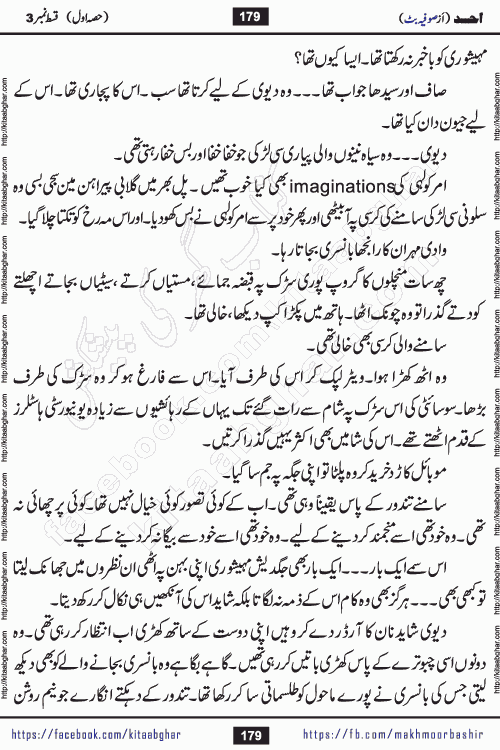 اُحد (از صوفیہ بٹ)
179
(حصہ اول) قسط نمبر 3
مہیشوری کو باخبر نہ رکھتا تھا۔ ایسا کیوں تھا؟
صاف اور سیدھا جواب تھا۔۔۔ وہ دیوی کے لیے کرتا تھا سب۔ اس کا پجاری تھا۔ اس کے
لیے جیون دان کیا تھا۔
دیوی۔۔۔ وہ سیاہ نینوں والی پیاری سی لڑکی جو خفا خفا اور بس خفا رہتی تھی۔
امر کوہلی کی imaginations بھی کیا خوب تھیں۔ پل بھر میں گلابی پیراہن میں سجی بسی وہ
سلونی سی لڑکی سامنے کی کرسی پہ آ بیٹھی اور پھر خود پر سے امر کوہلی نے بس کھو دیا۔ اور اس مہ رخ کو تکتا چلا گیا۔
وادی مہران کا رانجھا بانسری بجاتا رہا۔
چھ سات منچلوں کا گروپ پوری سڑک پہ قبضہ جمائے، مستیاں کرتے، سیٹیاں بجاتے اچھلتے
کودتے گذرا تو وہ چونک اٹھا۔ ہاتھ میں پکڑا کپ دیکھا، خالی تھا۔
سامنے والی کرسی بھی خالی تھی۔
وہ اٹھ کھڑا ہوا۔ ویٹر لپک کر اس کی طرف آیا۔ اس سے فارغ ہو کر وہ سڑک کی طرف
بڑھا۔ سوسائٹی کی اس سڑک پہ شام سے رات گئے تک یہاں کے رہائشیوں سے زیادہ یونیورسٹی ہاسٹلرز
کے قدم اٹھتے تھے۔ اس کی شامیں بھی اکثر یہیں گذرا کرتیں۔
موبائل کارڈ خرید کر وہ پلٹا تو اپنی جگہ پہ جم سا گیا۔
سامنے تندور کے پاس یقیناً وہی تھی۔ اب کے کوئی تصور کوئی خیال نہیں تھا۔ کوئی پرچھائی نہ
تھی۔ وہ خود تھی اسے منجمد کر دینے کے لیے۔ وہ خود تھی اسے خود سے بیگانہ کر دینے کے لیے۔
اس سے ایک بار۔۔۔ ایک بار بھی جگدیش مہیشوری اپنی بہن پہ اٹھی ان نظروں میں جھانک لیتا
تو کبھی بھی۔۔۔ ہرگز بھی وہ کام اس کے ذمہ نہ لگاتا بلکہ شاید اس کی آنکھیں ہی نکال کر رکھ دیتا۔
دیوی شاید نان کا آرڈر دے کر وہیں اپنی دوست کے ساتھ کھڑی اب انتظار کر رہی تھی۔ وہ
دونوں اسی چبوترے کے پاس کھڑی باتیں کر رہی تھیں۔ گاہے بگاہے وہ بانسری بجانے والے کو بھی دیکھ
لیتی جس کی بانسری نے پورے ماحول کو طلسماتی سا کر رکھا تھا۔ تندور کے دہکتے انگارے جو نیم روشن
https://facebook.com/kitaabghar
179
https://fb.com/makhmoorbashir
http://kitaabghar.com
http://kitaabghar.com
http://kitaabghar.com
http://kitaabghar.com
http://kitaabghar.com
http://kitaabghar.com
http://kitaabghar.com
http://kitaabghar.com
کتاب گھر کی پیشکش
facebook.com/kitaabghar